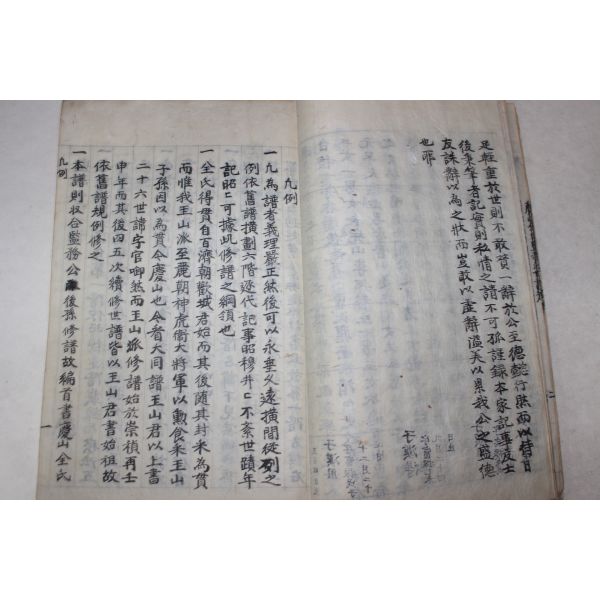 足輕重於世則不敢贊一辭於公至德懿行然而以傳百
後秉筆者記實則私情之請不可孤謹錄本家記並及士
友誄辭以為之狀而豈敢以虛辭溢美以累我公之盛德
也耶
凡例
一凡為譜者義理嚴正然後可以永垂久遠橫間從列之
例依舊譜橫劃六階逐代記事昭穆井〻不紊世蹟年
記昭〻可據此修譜之綱領也
一全氏得貫自百濟朝歡城君始而其後隨其封釆為貫
而惟我王山派至麗朝神虎衛大將軍以勳食釆王山
子孫因以為貫今慶山也今者大同譜王山君以上書
二十六世諱字官啣然而王山派修譜始於崇禎再壬
申年而其後四五次續修世譜皆以王山君書始祖故
依舊譜規例修之
一本譜則收合監務公後孫修譜故編首書慶山全氏
凡例
一
二
子漢浩
子漢進